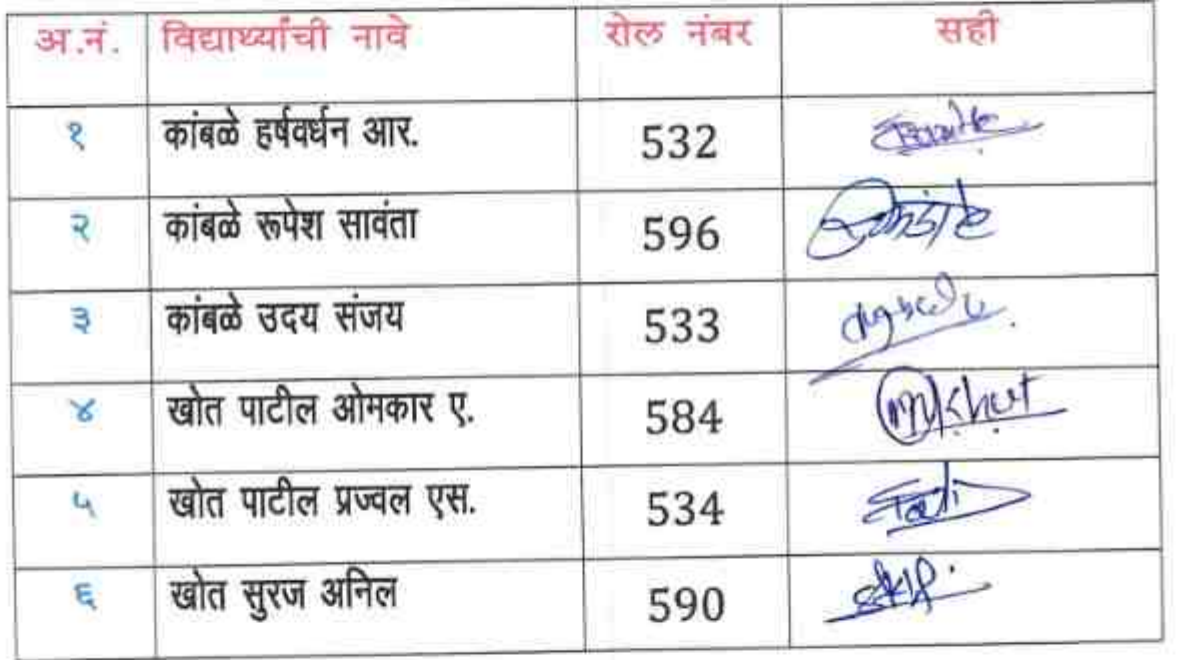 अ.नं. विद्यार्थ्यांची नावे रोल नंबर सही
१ कांबळे हर्षवर्धन आर. 532
२ कांबळे रूपेश सावंता 596
३ कांबळे उदय संजय 533
४ खोत पाटील ओमकार ए. 584
५ खोत पाटील प्रज्वल एस. 534
६ खोत सुरज अनिल 590